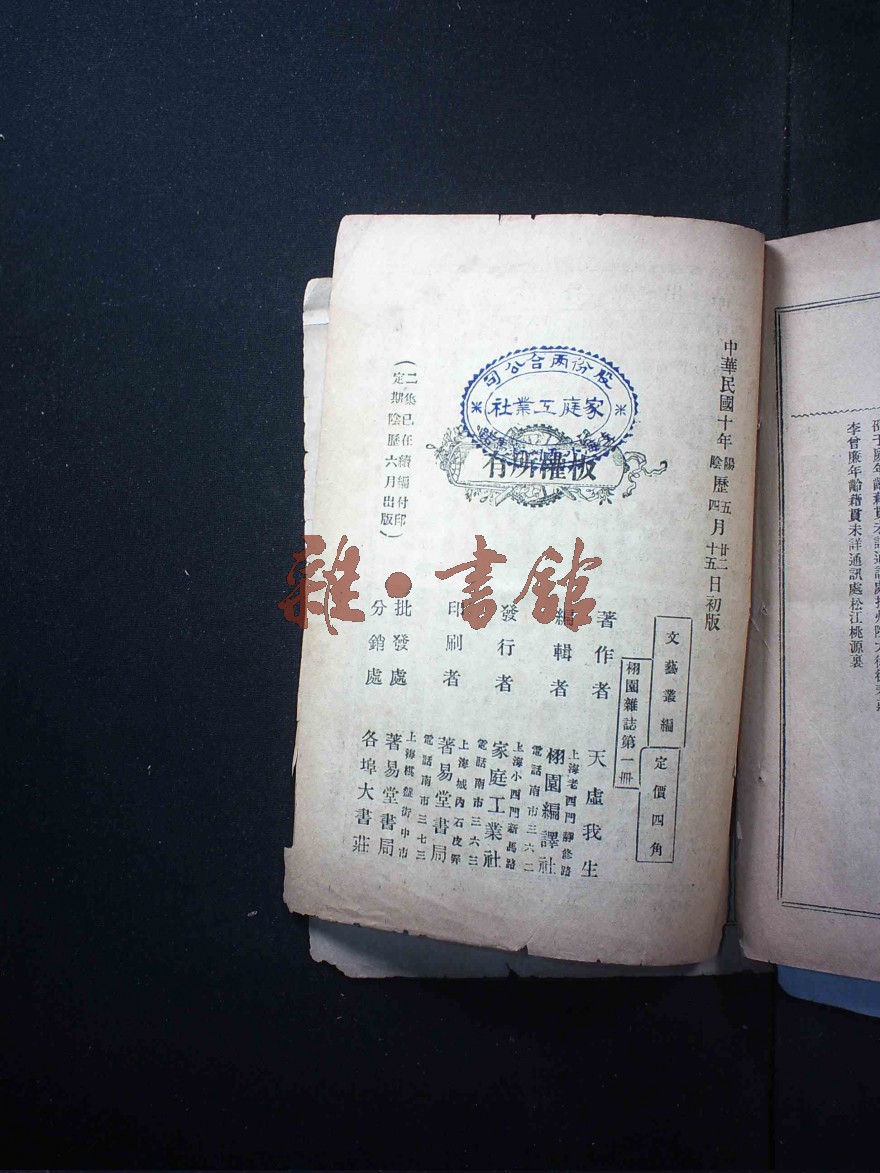 李曾廉年齡籍貫未詳通訊處松江桃源裏
中華民國十年陽陰歷五四月廿二十五日初版
股份兩合公司
家庭工業社
板權所有
(二集已在續編付印
定期陰歷六月出版)
文藝叢編
栩園雜誌第一冊
定價四角
著作者 天虛我生
編輯者 上海老西門靜修路
電話南市三六二
栩園編譯社
發行者 上海小西門新馬路
電話南市三六三
家庭工業社
印刷者 上海城內石皮弄
電話南市三七三
著易堂書局
批發處 上海棋盤街中市
著易堂書局
分銷處 各埠大書莊
雜·書館